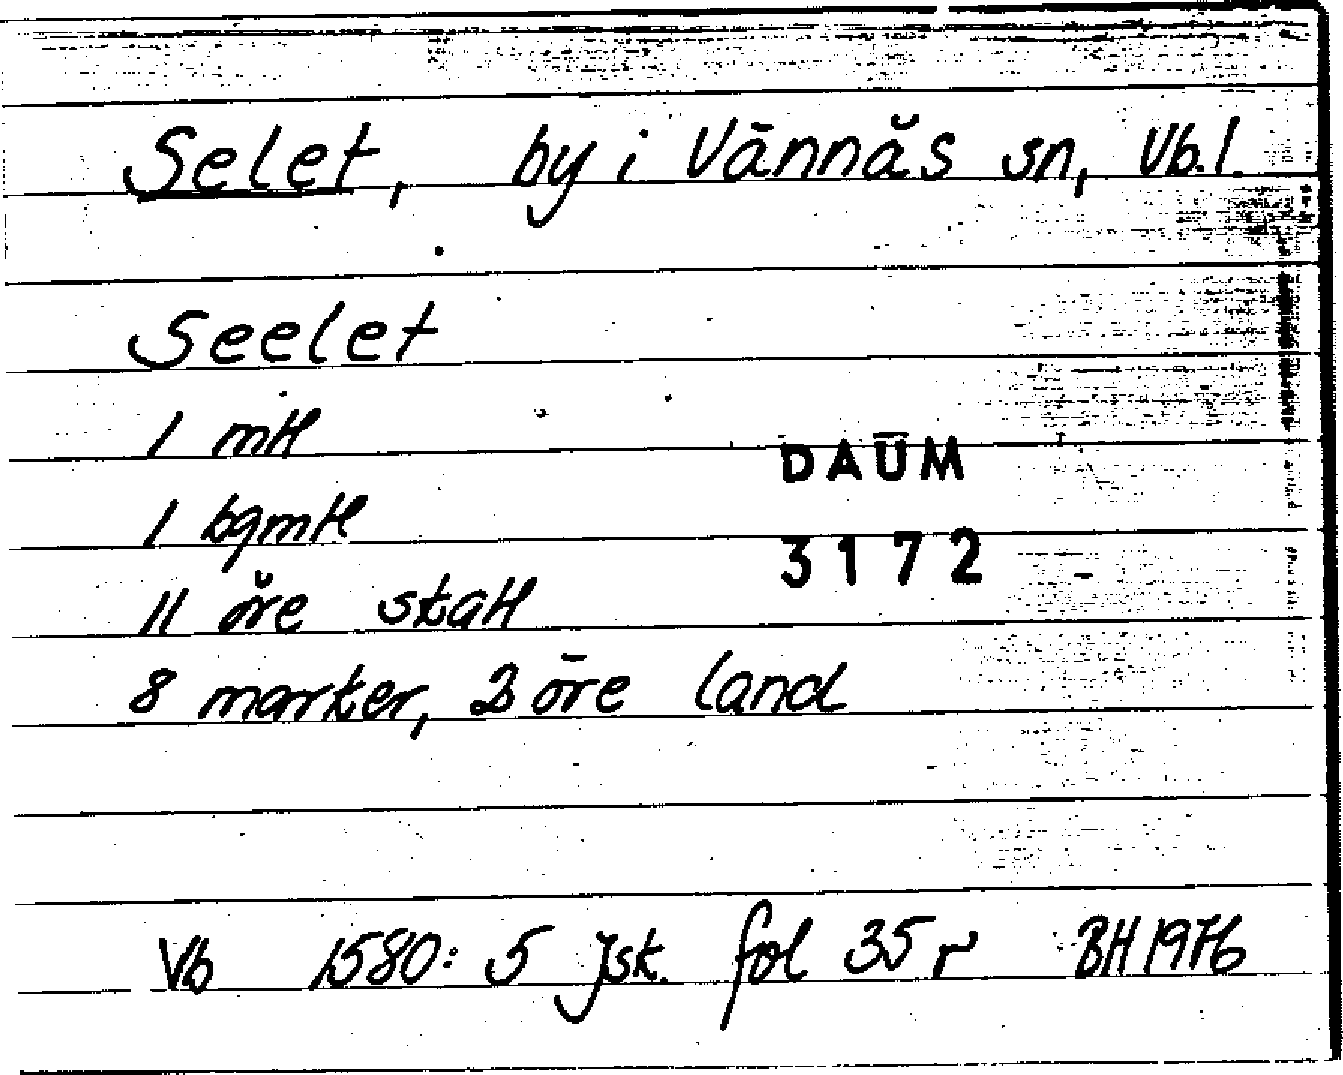 Selet, by i Vännäs sn, Vb.l.
Seelet
1 mtl
1 bgmtl
DAUM
3172
11 öre skatt
8 marker, 2 öre land
Vb 1580: 5 Jsk. fol 35 r BH 1976